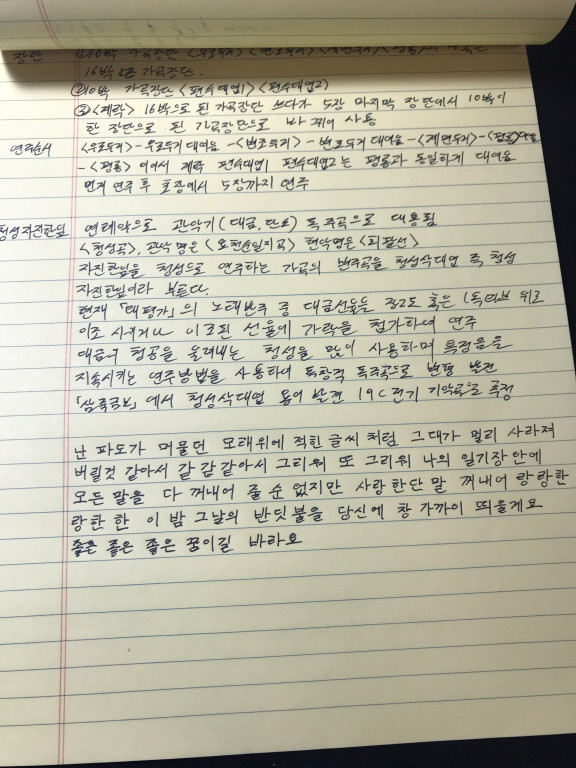 장단 ①10박 가곡장단 <우조두거> <변조두거> <계면두거> <평롱>
16박 가곡장단.
②10박 가곡장단 <편수대엽1> <편수대엽2>
③<계락> 16박으로 된 가곡장단 쓰다가 5장 마지막 장단에서 10박이
한 장단으로 된 가곡장단으로 바꿔어 사용
연주순서 <우조두거> - 우조두거 대여음 - <변조두거> - 변조두거 대여음 - <계면두거> - <평롱>
- <평롱> 이어서 계락 편수대엽1 편수대엽2는 평롱과 동일하게 대여음
먼저 연주 후 초장에서 5장까지 연주
청성자진한잎 연례악으로 관악기(대금, 단소) 독주곡으로 대용됨
<청성곡>, 관악명은 <요천순일지곡> 현악명은
자진한잎을 청성으로 연주하는 가곡의 변주곡을 청성삭대엽 즉 청성
자진한잎이라 부른다.
현재 「태평가」의 노래반주 중 대금선율을 장2도 혹은 1옥타브 위로
이조 시키거나 이조된 선율에 가락을 첨가하여 연주
대금의 청공을 울려내는 청성을 많이 사용하며 특정음을
지속시키는 연주방법을 사용하여 독창적 독주곡으로 변형 발전
「삼죽금보」에서 청성삭대엽 용어 발견 19C 전기 기악곡으로 추정
난 파도가 머물던 모래위에 적힌 글씨 처럼 그대가 멀리 사라져
버릴것 같아서 같 감같아서 그리워 또 그리워 나의 일기장 안에
모든 말을 다 꺼내어 줄 순 없지만 사랑한단 말 꺼내어 랑랑한
랑한 한 이 밤 그날의 반딧불을 당신에 창 가까이 띄울게요
좋은 좋은 좋은 꿈이길 바라요